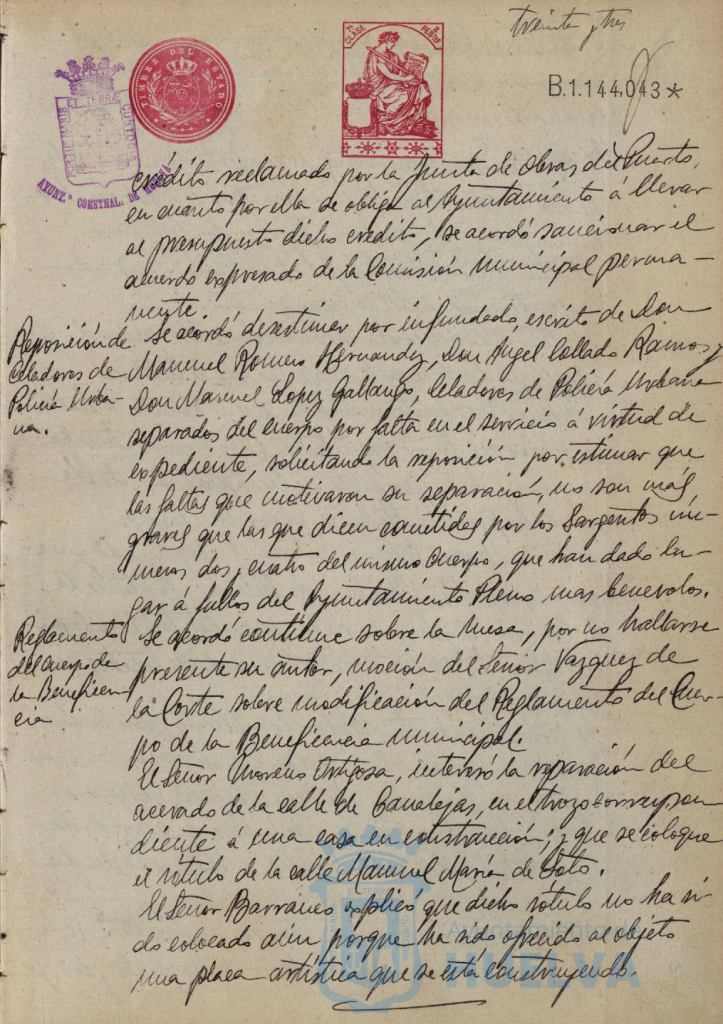 treinta y tres
TIMBRE DEL ESTADO
7ª CLASE
2 PESETAS
B.1.144,043*
AYUNT.º CONSTNAL. DE HUELVA
crédito reclamado por la Junta de Obras del Puerto,
en cuanto por ella se obliga al Ayuntamiento á llevar
al presupuesto dicho crédito, se acordó sancionar el
acuerdo expresado de la Comisión Municipal perma-
nente.
Reposición de
Celadores de
Policía Urba-
na.
Se acordó desestimar por infundado, escrito de Don
Manuel Romero Hernandez, Don Angel Collado Ramos y
Don Manuel Lopez Gallango, Celadores de Policía Urbana
separados del cuerpo por falta en el servicio á virtud de
expediente, solicitando la reposición por estimar que
las faltas que motivaron su separación, no son más
graves que las que dicen cometidas por los Sargentos nú-
meros dos y cuatro del mismo Cuerpo, que han dado lu-
gar á fallos del Ayuntamiento Pleno mas benevolos.
Reglamento
del Cuerpo de
la Beneficen
cia
Se acordó continue sobre la mesa, por no hallarse
presente su autor, moción del Señor Vazquez de
la Corte sobre modificación del Reglamento del Cuer-
po de la Beneficencia Municipal.
El Señor Moreno Ortigosa, interesó la reparación del
acerado de la calle de Canalejas, en el trozo correspon
diente á una casa en construcción; y que se coloque
el rótulo de la calle Manuel María de Soto.
El Señor Barranco explicó que dicho rótulo no ha si-
do colocado aún pórque ha sido ofrecido al objeto
una placa artística que se está construyendo.
HUELVA